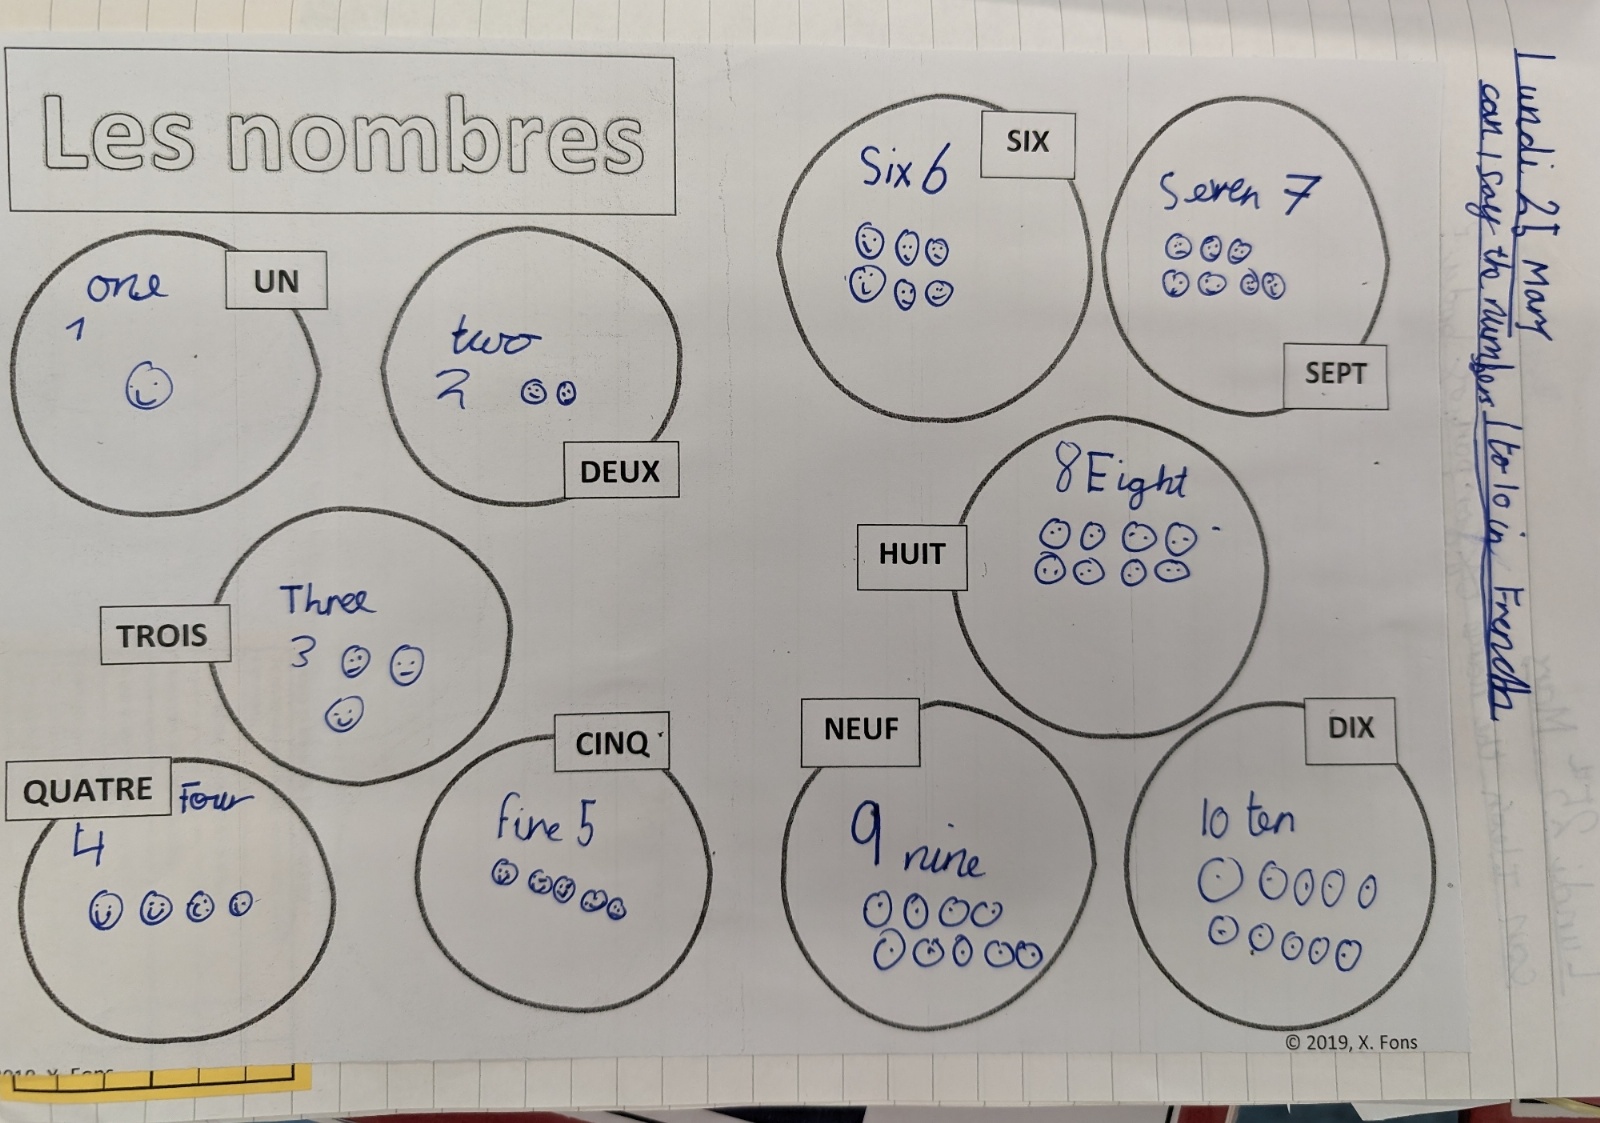 Lundi 21 Mary
can I say th numbers 1 to 10 in French
Les nombres
UN
one
1
DEUX
two
2
TROIS
Three
3
QUATRE
Four
4
CINQ
five 5
SIX
Six 6
SEPT
Seven 7
HUIT
8 Eight
NEUF
9 nine
DIX
10 ten
© 2019, X. Fons